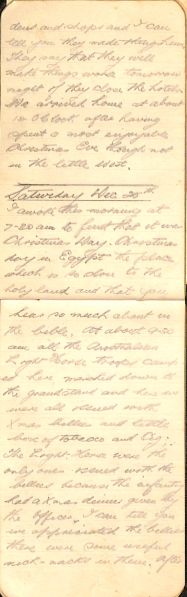 dens and shops and I can
tell you they made things hum
They say that they will
make things worse tomorrow
night if they close the hotels
We arrived home at about
10 o'clock after having
spent a most enjoyable
Christmas Eve though not
in the little
Saturday Dec 25th
I awoke this morning at
7-20 am to find that it was
Christmas Day. Christmas
day in Egypt the place
which is so close to the
holy land and that you
hear so much about in
the bible. At about 9-30
am all the Australian
Light Horse troops camp
ed here marched down to
the grandstand and here we
were all issued with
Xmas billies and little
box of tobacco and Cig:
The Light-Horse were the
only ones issued with the
billies because the infantry
had a Xmas dinner given by
the officers. I can tell you
we appreciated the billies
there were some useful
nick-nacks in them. After